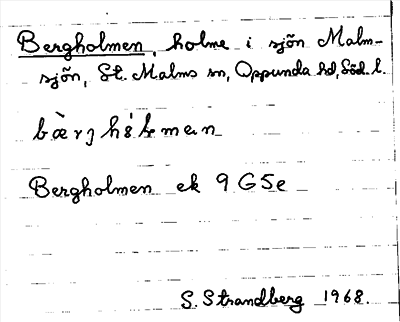 Bergholmen, holme i sjön Malm-
sjön, St. Malms sn, Oppunda hd, Söd. l.
Bergholmen ek 9G5e
S. Strandberg 1968.